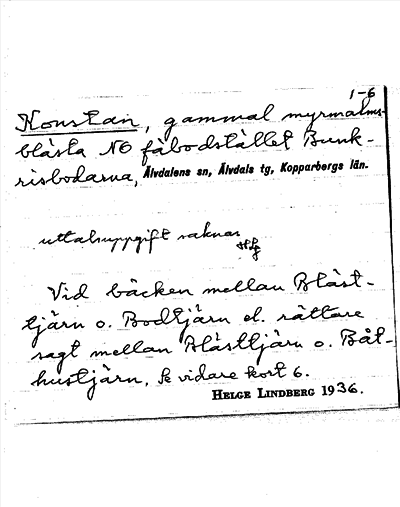 1-6
Konstan, gammal myrmalms-
blästa NO fäbodstället Bunk-
risbodarna, Älvdalens sn, Älvdals tg, Kopparbergs län.
uttalsuppgift saknas
Hlg
Vid bäcken mellan Bläst-
tjärn o. Bodtjärn el. rättare
sagt mellan Blästtjärn o. Båt-
hustjärn, Se vidare kort 6.
HELGE LINDBERG 1936.